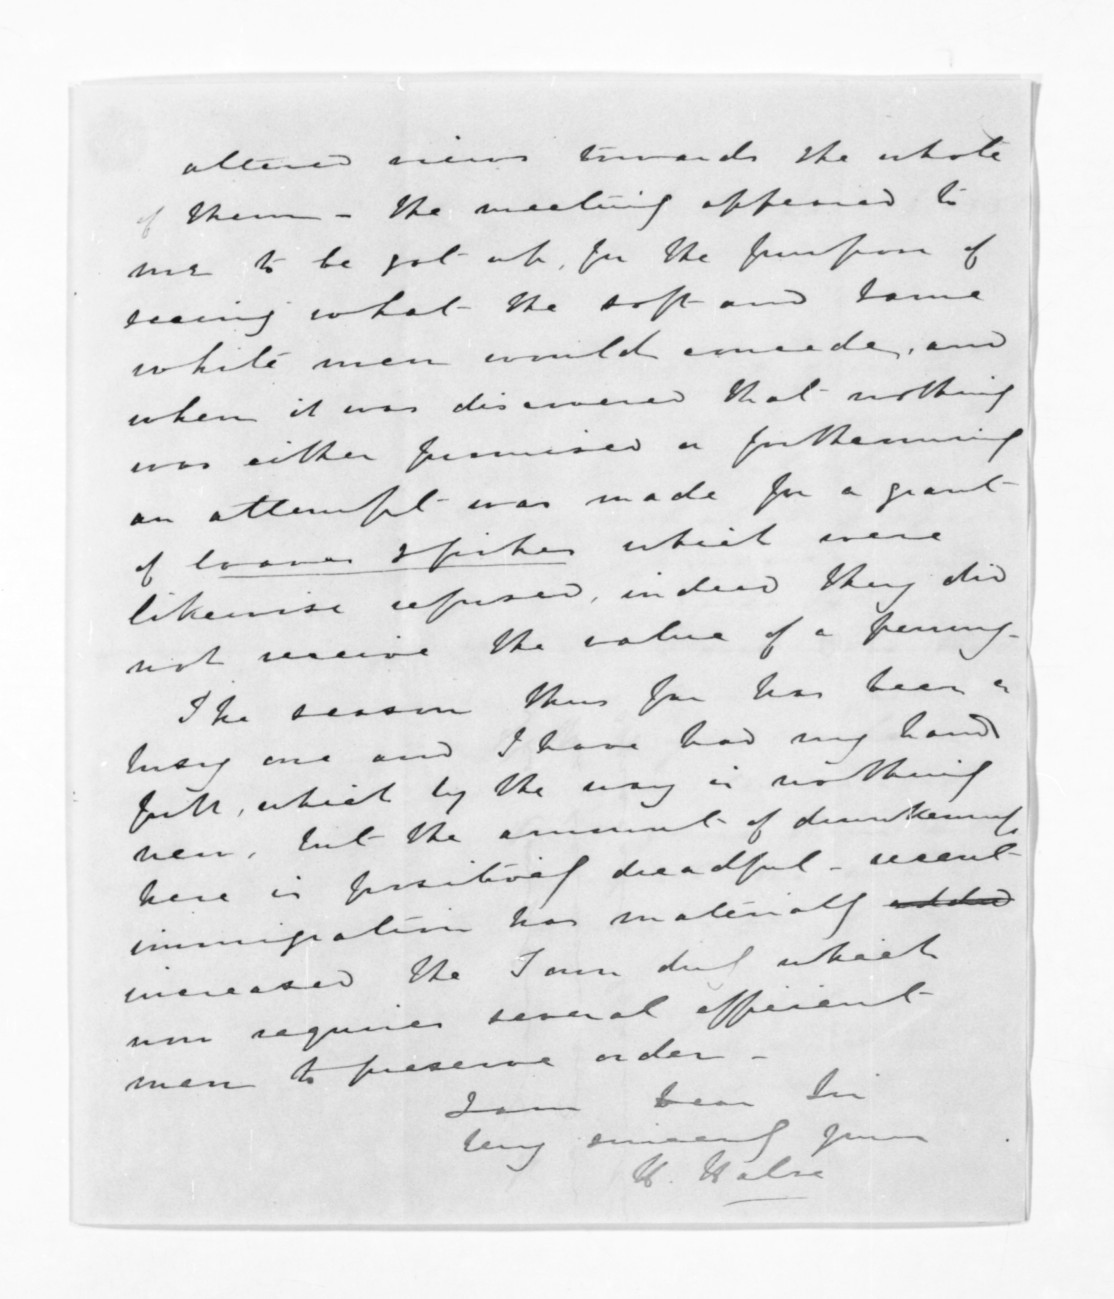 altered views towards the whole
of them - the meeting appeared to
me to be got up, for the purpose of
seeing what the soft and tame
white men would concede, and
when it was discovered that nothing
was either promised or forthcoming
an attempt was made for a grant
of loaves & fishes which were
likewise refused, indeed they did
not receive the value of a penny -
The season thus far has been a
busy one and I have had my hands
full, which by the way is nothing
new, but the amount of drunkenness
here is positively dreadful - recent
immigration has materially added
increased the Town duty which
now requires several efficient
men to preserve order -
I am Dear Sir
Very sincerely yours
H. Halse